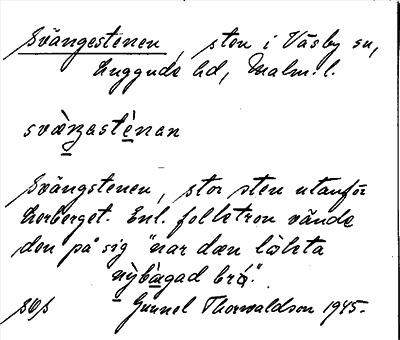 Svängestenen, sten i Väsby sn,
Luggude hd, Malm. l.
svæ̀ŋastènan
Svängstenen, stor sten utanför
Lerberget. Enl. folktron vände
den på sig "nar dæn lòkta
nỳbàgad brø̀".
Gunnel Thorwaldson 1945.